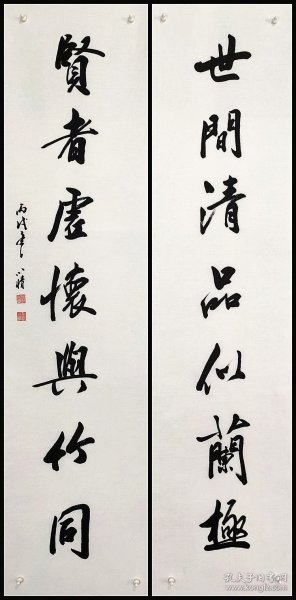 世間清品似蘭極
賢者虛懷與竹同
丙戌年
孔夫子旧书网
www.kongfz.com